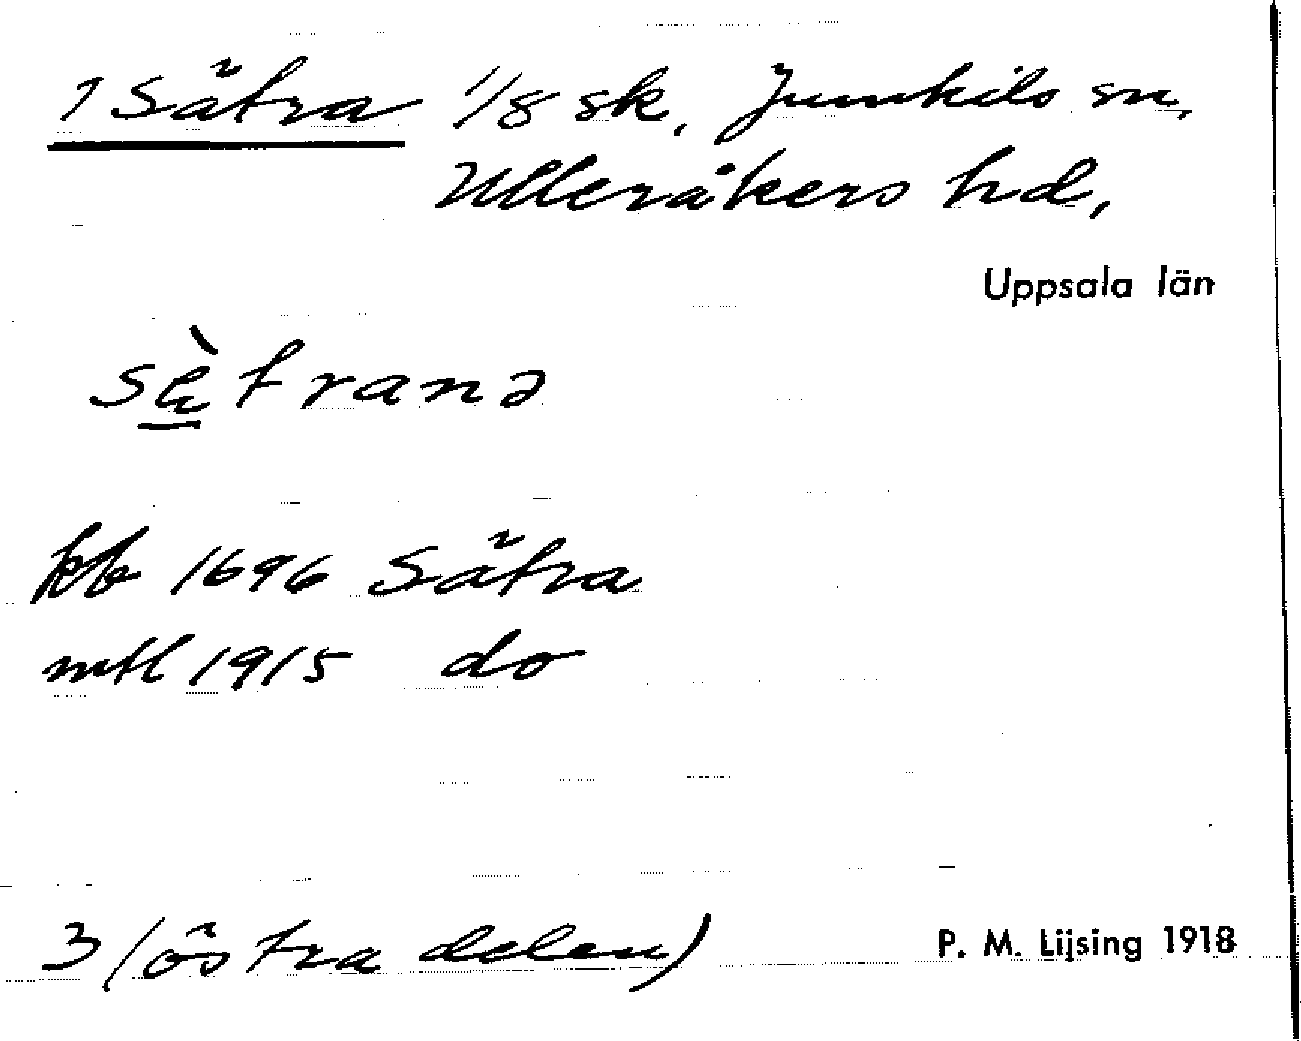 1 Sätra 1/8 sk. Jumkils sn,
Ulleråkers hd,
Uppsala län
sæ̀tranə
kb 1696 Sätra
mtl 1915 do
3 (östra delen)
P. M. Lijsing 1918